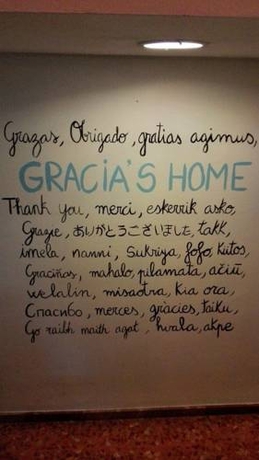 Grazas, Obrigado, gratias agimus,
GRACIA'S HOME
Thank you, merci, eskerrik asko,
Grazie, ありがとうございました, takk,
imela, nanni, Sukriya, fofo, kiitos,
Graciñas, mahalo, pilamata, ačiū,
welalin, misaotra, kia ora,
Спасибо, merces, gràcies, faiku,
Go raibh maith agat, hvala, akpe